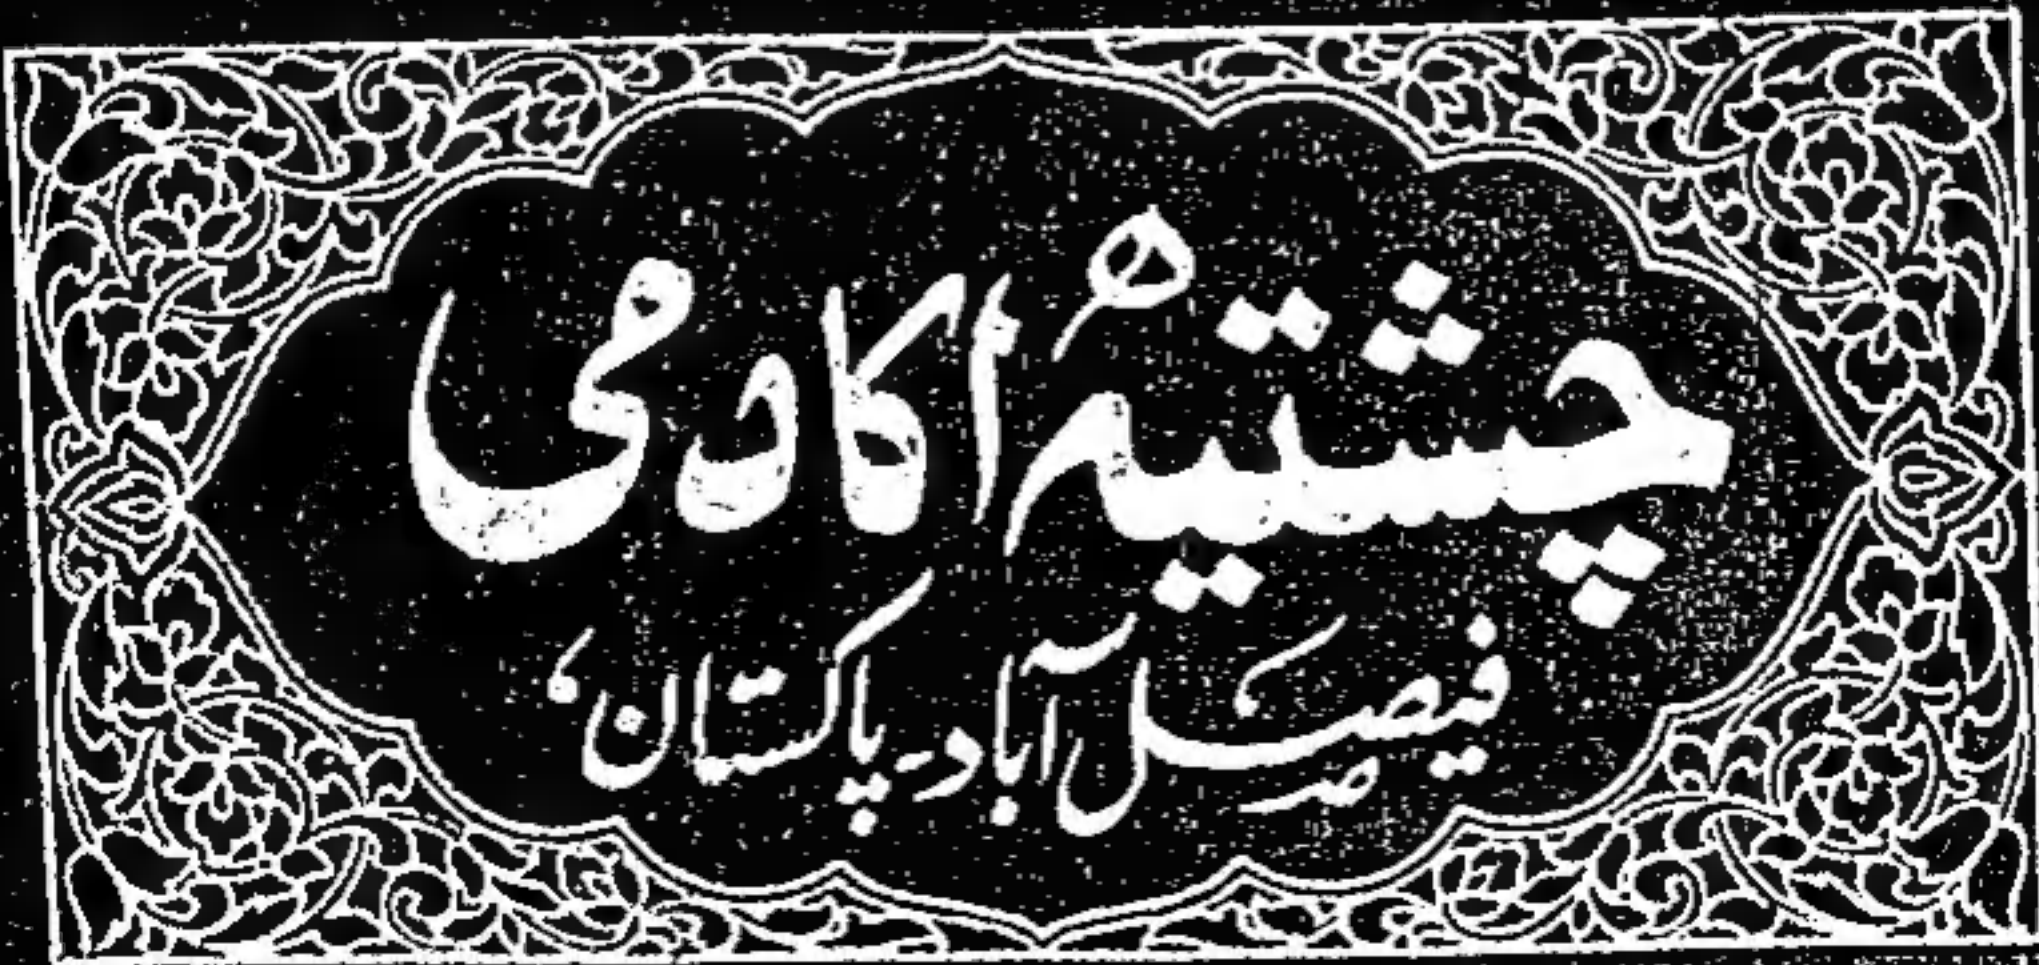 چشتیہ اکادمی
فیصل آباد۔ پاکستان